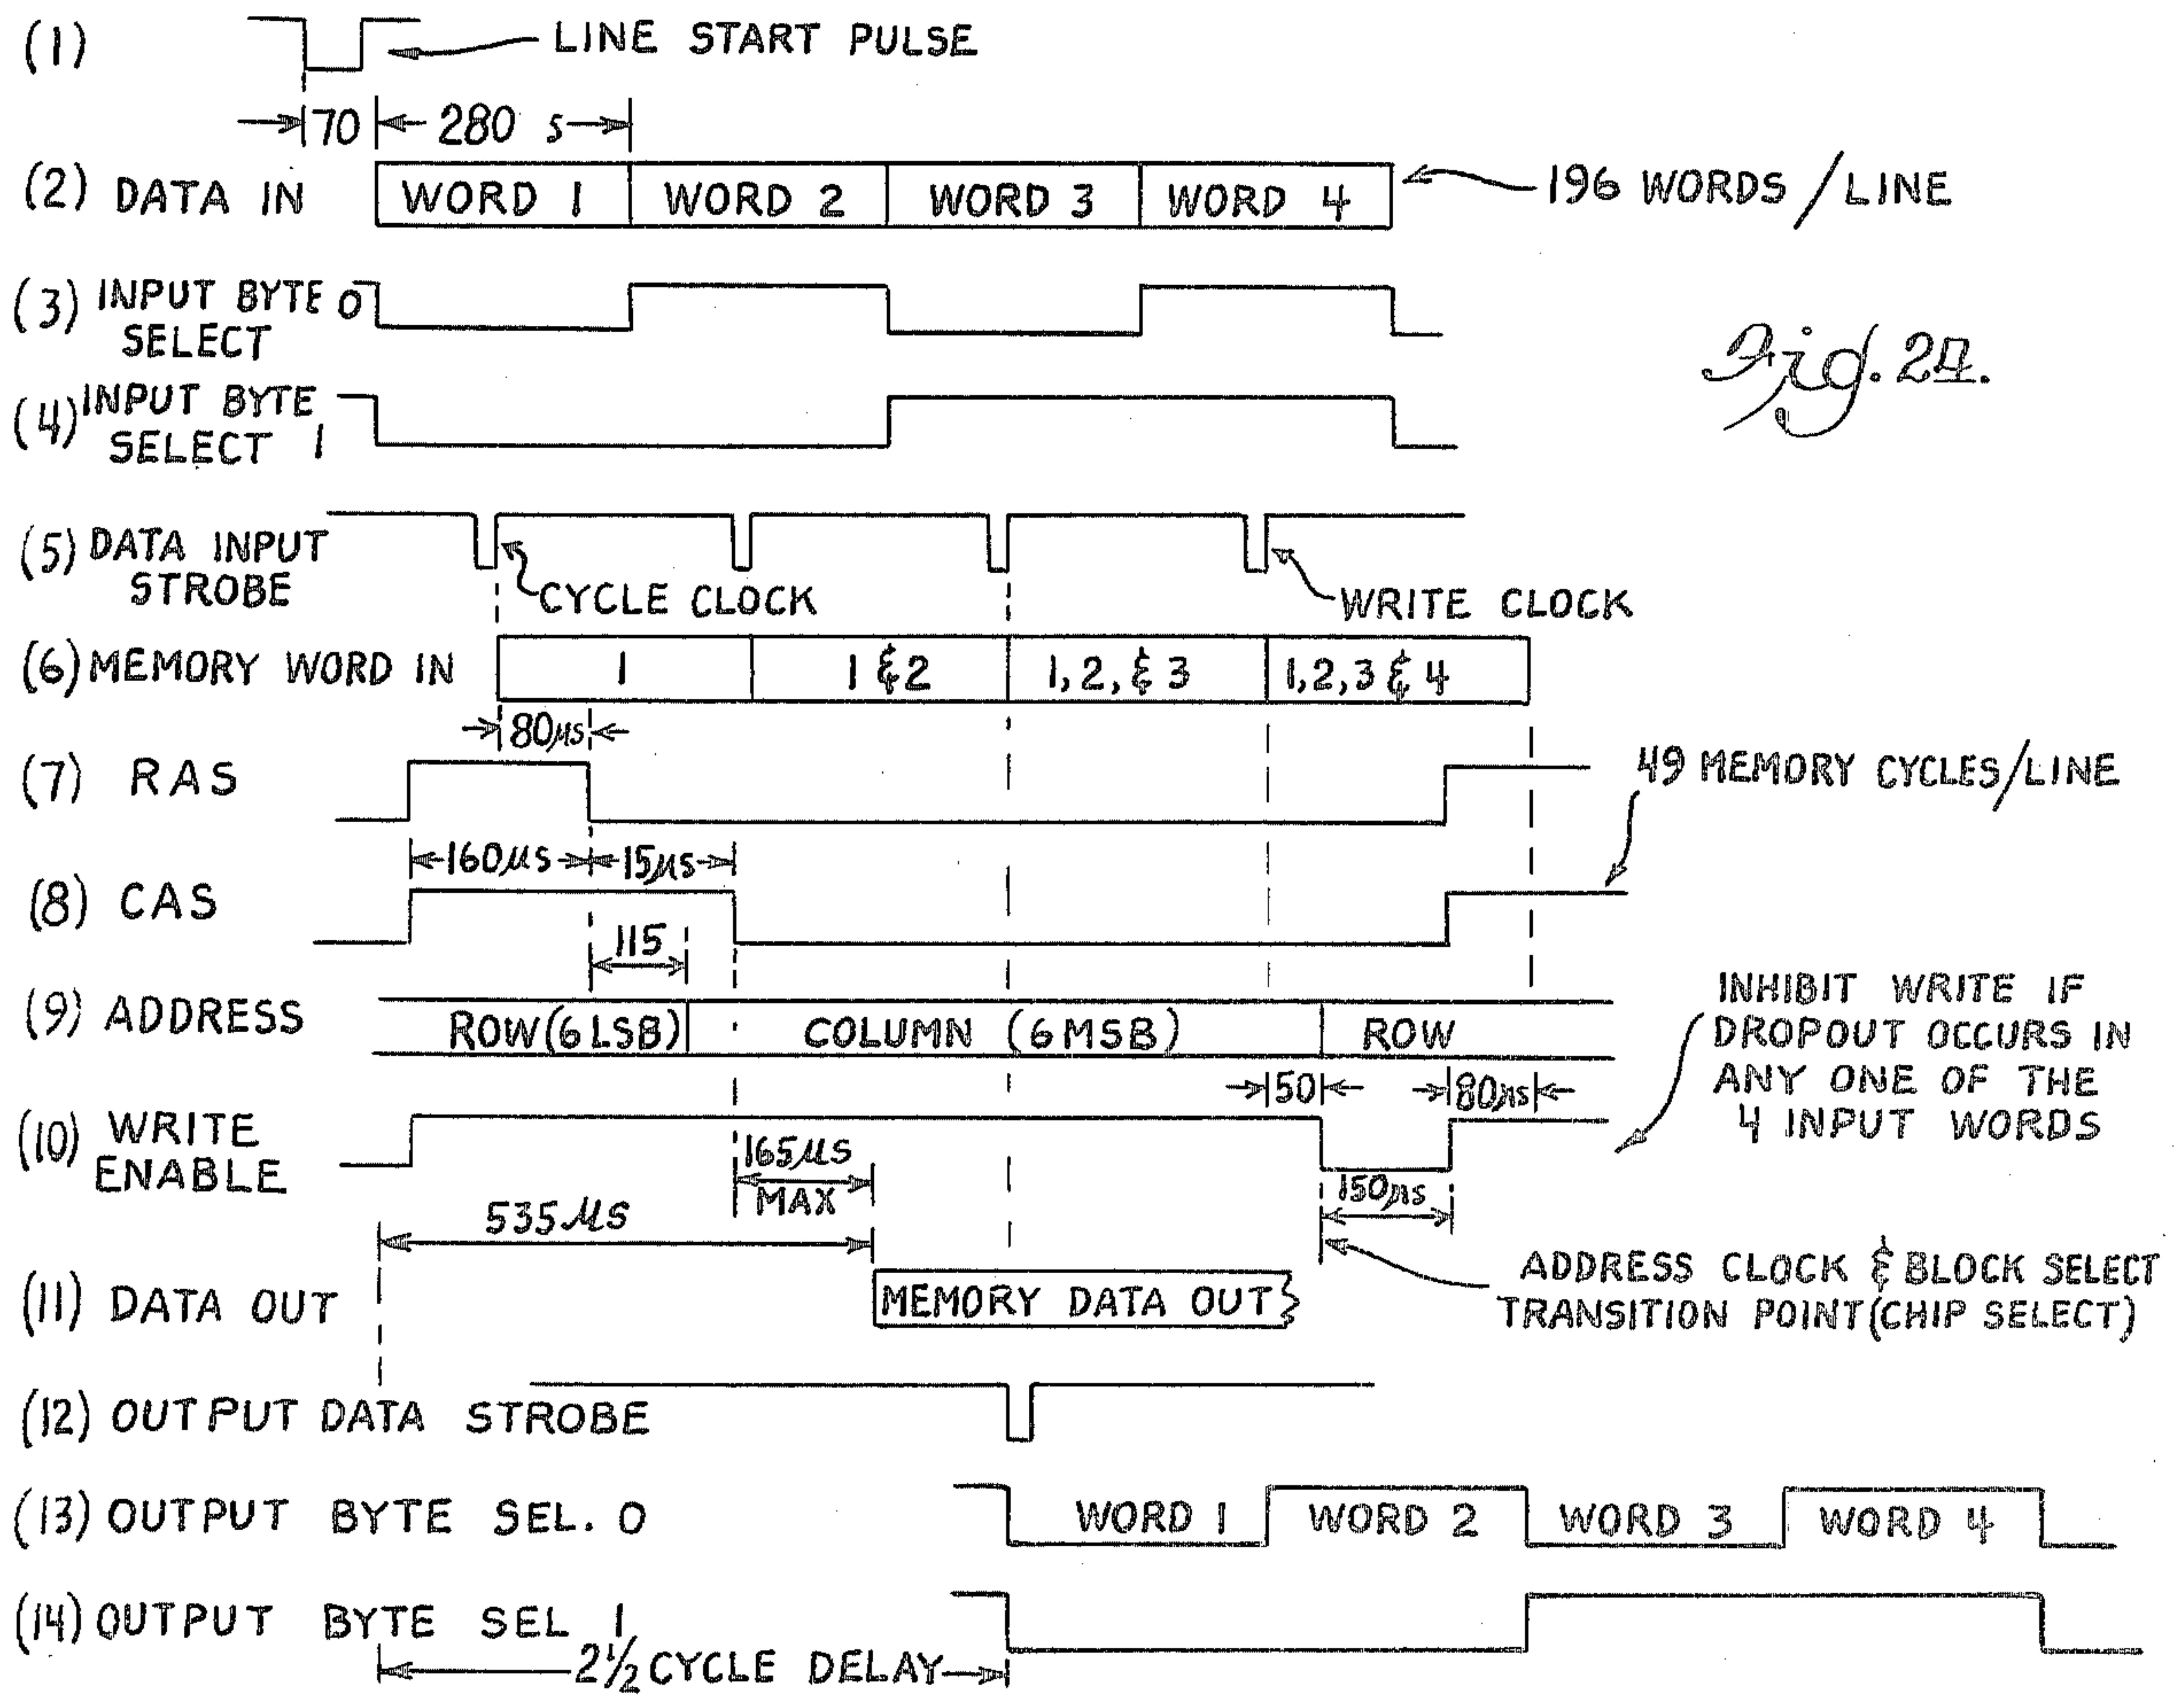 (1)
LINE START PULSE
70
280 s
(2) DATA IN
WORD 1
WORD 2
WORD 3
WORD 4
196 WORDS/LINE
(3) INPUT BYTE 0
SELECT
Fig. 24.
(4) INPUT BYTE
SELECT 1
(5) DATA INPUT
STROBE
CYCLE CLOCK
WRITE CLOCK
(6) MEMORY WORD IN
1
1 & 2
1, 2, & 3
1, 2, 3 & 4
80μs
(7) RAS
49 MEMORY CYCLES/LINE
160μs
15μs
(8) CAS
115
(9) ADDRESS
ROW (6 LSB)
COLUMN (6 MSB)
ROW
INHIBIT WRITE IF
DROPOUT OCCURS IN
ANY ONE OF THE
4 INPUT WORDS
50
80μs
(10) WRITE
ENABLE
165μs
MAX
150μs
535μs
ADDRESS CLOCK & BLOCK SELECT
TRANSITION POINT (CHIP SELECT)
(11) DATA OUT
MEMORY DATA OUT
(12) OUTPUT DATA STROBE
(13) OUTPUT BYTE SEL. 0
WORD 1
WORD 2
WORD 3
WORD 4
(14) OUTPUT BYTE SEL 1
2½ CYCLE DELAY